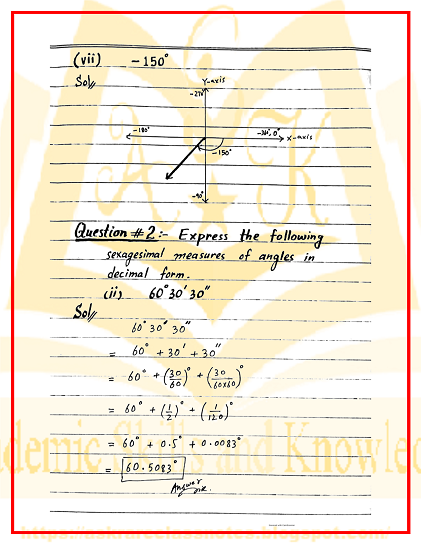 (vii) -150°
Sol//
Y-axis
-270°
-180°
-360°, 0° X-axis
-150°
-90°
Question #2:- Express the following
sexagesimal measures of angles in
decimal form.
(ii) 60°30'30"
Sol//
60° 30' 30"
= 60° + 30' + 30"
= 60° + (30/60)° + (30/60x60)°
= 60° + (1/2)° + (1/120)°
= 60° + 0.5° + 0.0083°
= 60.5083°
Answer
A K
Academic Skills and Knowledge